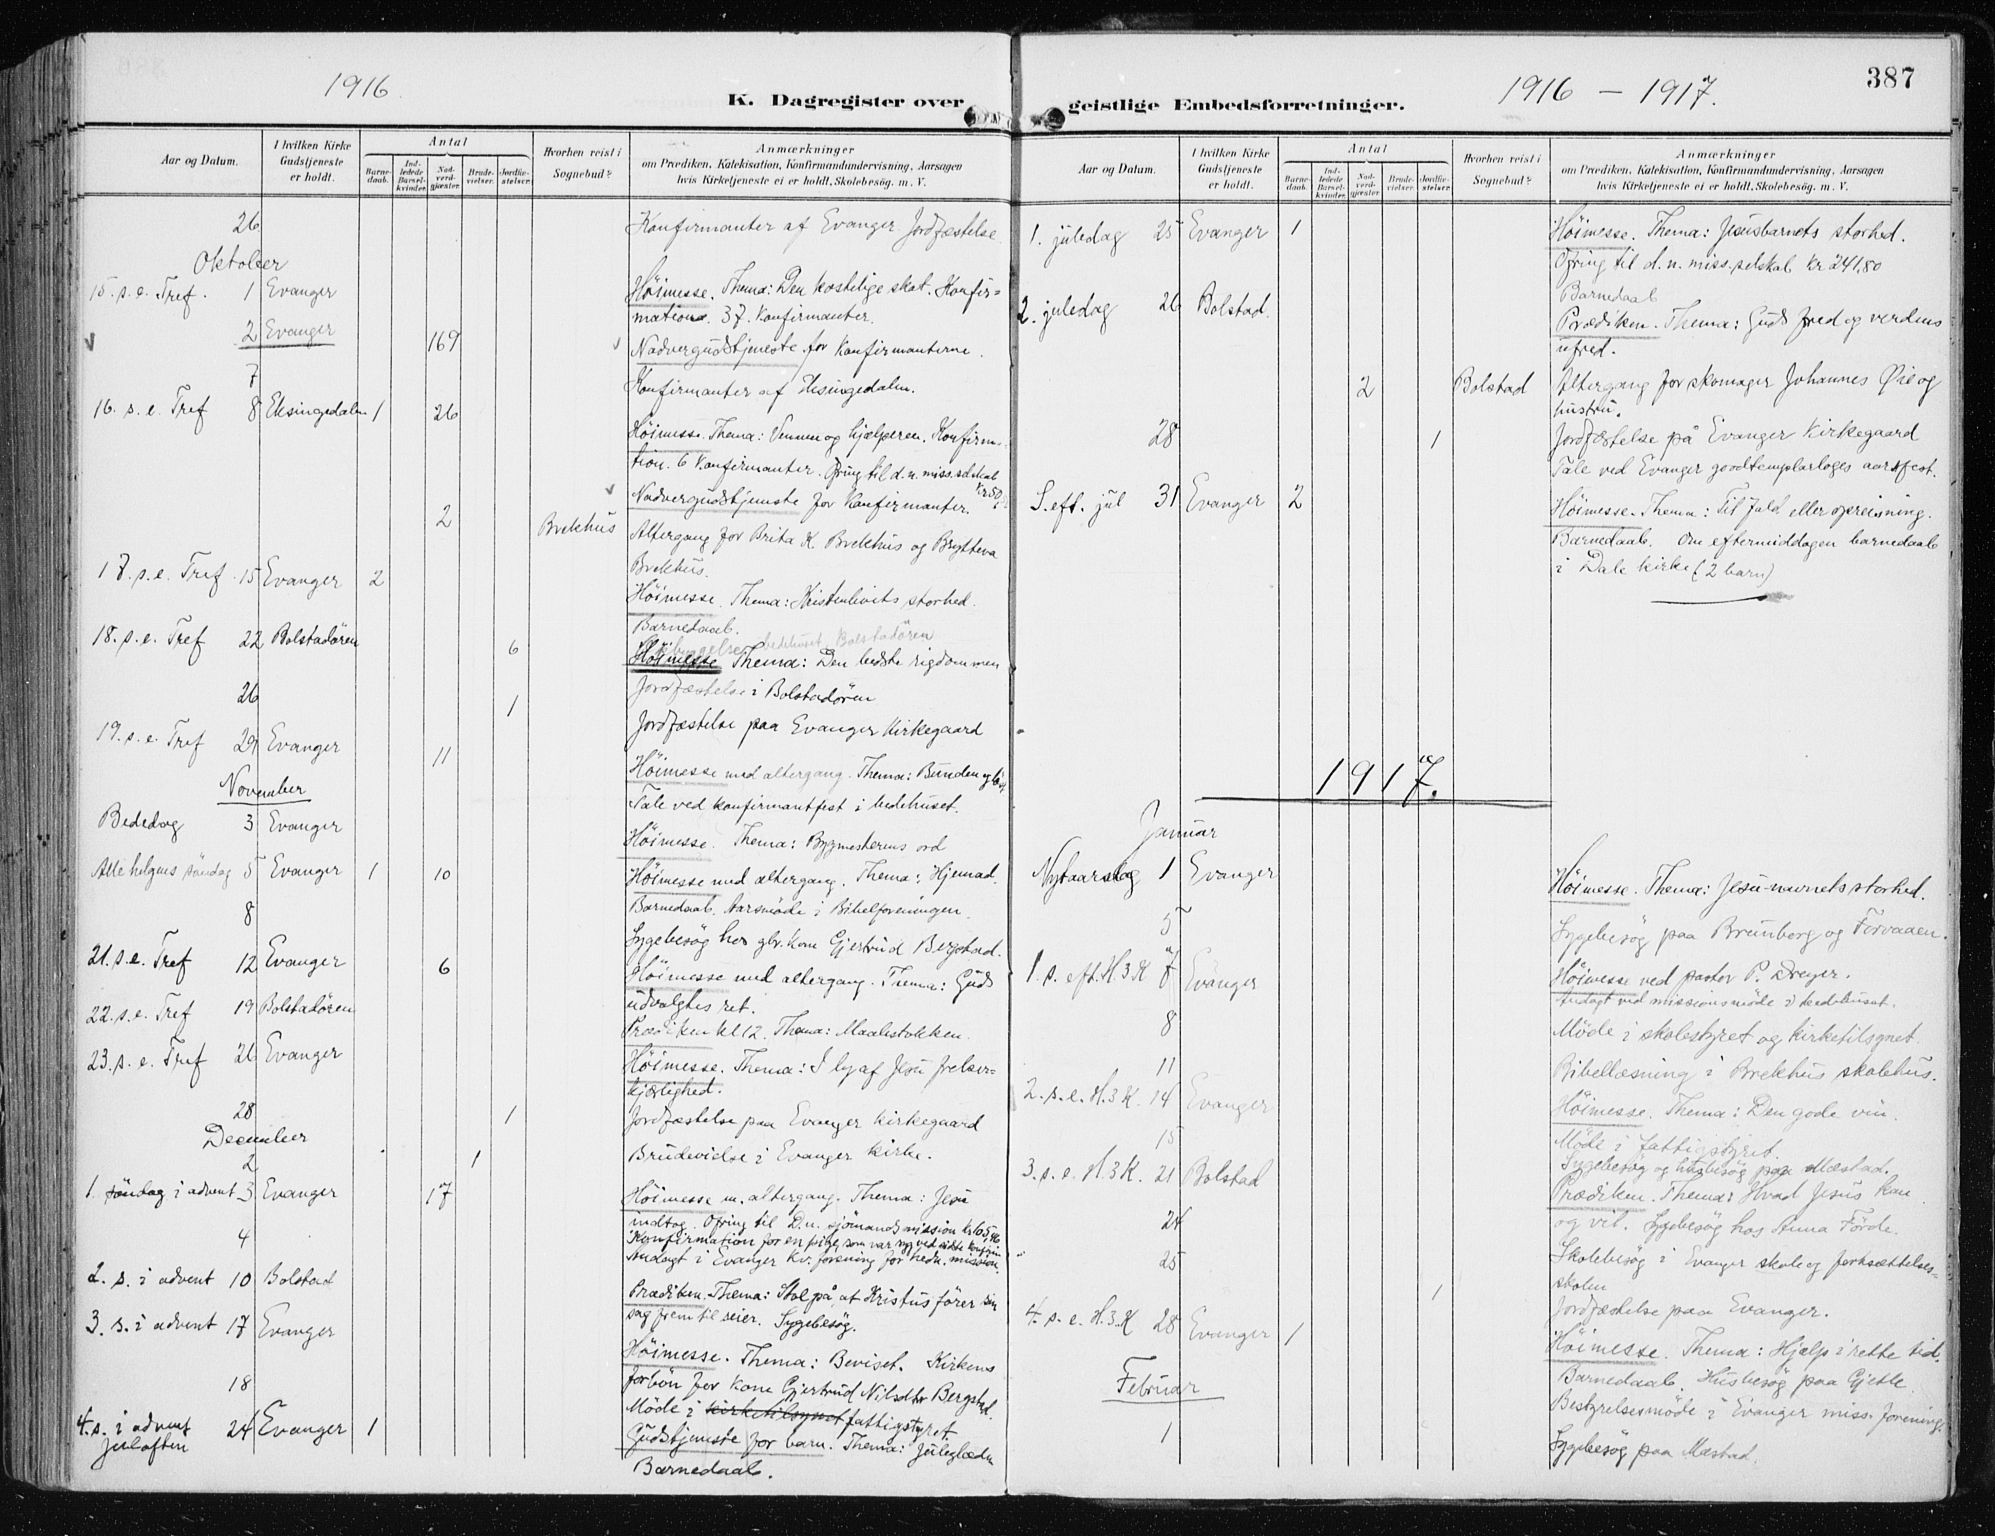 1916
K. Dagregister over
Aar og Datum.
I hvilken Kirke Gudstjeneste er holdt.
Antal
Barnedaab.
Indledede Barselkvinder.
Nadverdgjæster.
Brudevielser.
Jordfæstelser.
Hvorhen reist i Sognebud?
Anmærkninger
om Prædiken, Katekisation, Konfirmandundervisning, Aarsagen
hvis Kirketjeneste ei er holdt, Skolebesög. m. V.
26 Konfirmanter af Evanger Jordfæstelse
Oktober
15. s. e. Tref. 1 Evanger Höimesse. Thema: Den kostelige skat. Konfir=
mation. 37. Konfirmanter.
2 Evanger 169 Nadvergudstjeneste for Konfirmanterne.
7 Konfirmanter af Eksingedalen.
16. s. e. Tref 8 Eksingedalen 1 26
Höimesse. Thema: Vennen og hjælperen. Konfirma-
tion. 6 Konfirmanter. Ofring til d. n. miss. selskab
Kr 50,-
Nadvergudstjeneste for Konfirmanter.
2 Brekhus Altergang for Brita K. Brekhus og Brytteva
Brekhus.
17. s. e. Tref. 15 Evanger 2 Höimesse. Thema: Kristenlivets storhed.
Barnedaab.
bedehuset Bolstadören
18. s. e. Tref 22 Bolstadören 6 Höimesse Thema: Den bedste rigdommen
Jordfæstelse i Bolstadören
26 1 Jordfæstelse paa Evanger Kirkegaard
19. s. e. Tref 29 Evanger 11 Höimesse med altergang. Thema: Bunden og löst
November Tale ved konfirmantfest i bedehuset.
Bededag 3 Evanger Höimesse. Thema: Bygmesterens ord
Alle helgens söndag 5 Evanger 1 10 Höimesse med altergang. Thema: Hjemad.
Barnedaab. Aarsmöde i Bibelforeningen.
8 Sygebesög hos gbr. kone Gjertrud Bergstad.
21. s. e. Tref 12 Evanger 6 Höimesse med altergang. Thema: Guds
udvalgtes ret.
22. s. e. Tref 19 Bolstadören Prædiken kl 12. Thema: Maalestokken.
23. s. e. Tref 26 Evanger Höimesse. Thema: I ly af Jesu frelser=
kjærlighed.
28 1 Jordfæstelse paa Evanger kirkegaard
December
2 1 Brudevielse i Evanger kirke.
1. söndag i advent 3 Evanger 17 Höimesse m. altergang. Thema: Jesu
indtog. Ofring til D. n. sjömandsmission kr 65,46
Konfirmation for en pike, som var syg ved sidste konfirm
4 Andagt i Evanger kv. forening for hedn. mission.
2. s. i advent 10 Bolstad Prædiken. Thema: Stol på, at Kristus förer sin
sag frem til seier. Sygebesög.
3. s. i advent 17 Evanger Höimesse. Thema: Beviset. Kirkens
forbön for kone Gjertrud Nilsdtr Bergstad.
18 Möde i kirketilsynet fattigstyret
4. s. i advent 24 Evanger 1 Gudstjeneste for barn. Thema: Juleglæden
Juleaften
Barnedaab.
geistlige Embedsforretninger.
1916 – 1917.
387
Aar og Datum.
I hvilken Kirke Gudstjeneste er holdt.
Antal
Barnedaab.
Indledede Barselkvinder.
Nadverdgjæster.
Brudevielser.
Jordfæstelser.
Hvorhen reist i Sognebud?
Anmærkninger
om Prædiken, Katekisation, Konfirmandundervisning, Aarsagen
hvis Kirketjeneste ei er holdt, Skolebesög. m. V.
1. juledag 25 Evanger 1 Höimesse. Thema: Jesusbarnets storhed.
Ofring til d. n. miss. selskab kr 241,80
Barnedaab
2. juledag 26 Bolstad. Prædiken. Thema: Guds fred og verdens
ufred.
2 Bolstad Altergang for skomager Johannes Øie og
hustru.
28 1 Jordfæstelse på Evanger kirkegaard
Tale ved Evanger goodtemplarloges aarsfest.
S. eft. jul 31 Evanger 2 Höimesse. Thema: Til fald eller opreisning.
Barnedaab. Om eftermiddagen barnedaab
i Dale kirke (2 barn)
1917.
Januar
Nytaarsdag 1 Evanger Höimesse. Thema: Jesu-navnets storhed.
5 Sygebesög paa Brunborg og Fervaaen.
1. s. eft. H. 3 K 7 Evanger Höimesse ved pastor P. Dreyer.
Andagt ved missionsmöde i bedehuset.
8 Möde i skolestyret og kirketilsynet.
11 Bibellæsning i Brekhus skolehus.
2. s. e. H. 3 K. 14 Evanger Höimesse. Thema: Den gode vin.
15 Möde i fattigstyret.
Sygebesög og husbesög paa Mæstad.
3. s. e. H. 3 K. 21 Bolstad Prædiken. Thema: Hvad Jesus kan
og vil. Sygebesög hos Anna Förde.
24 Skolebesög i Evanger skole og fortsættelses=
skolen
25 1 Jordfæstelse paa Evanger.
4. s. e. H. 3. K 28 Evanger 1 Höimesse. Thema: Hjælp i rette tid.
Barnedaab. Husbesög paa Gjelle.
Februar
Bestyrelsesmöde i Evanger miss. forening.
1 Sygebesög paa Mæstad.